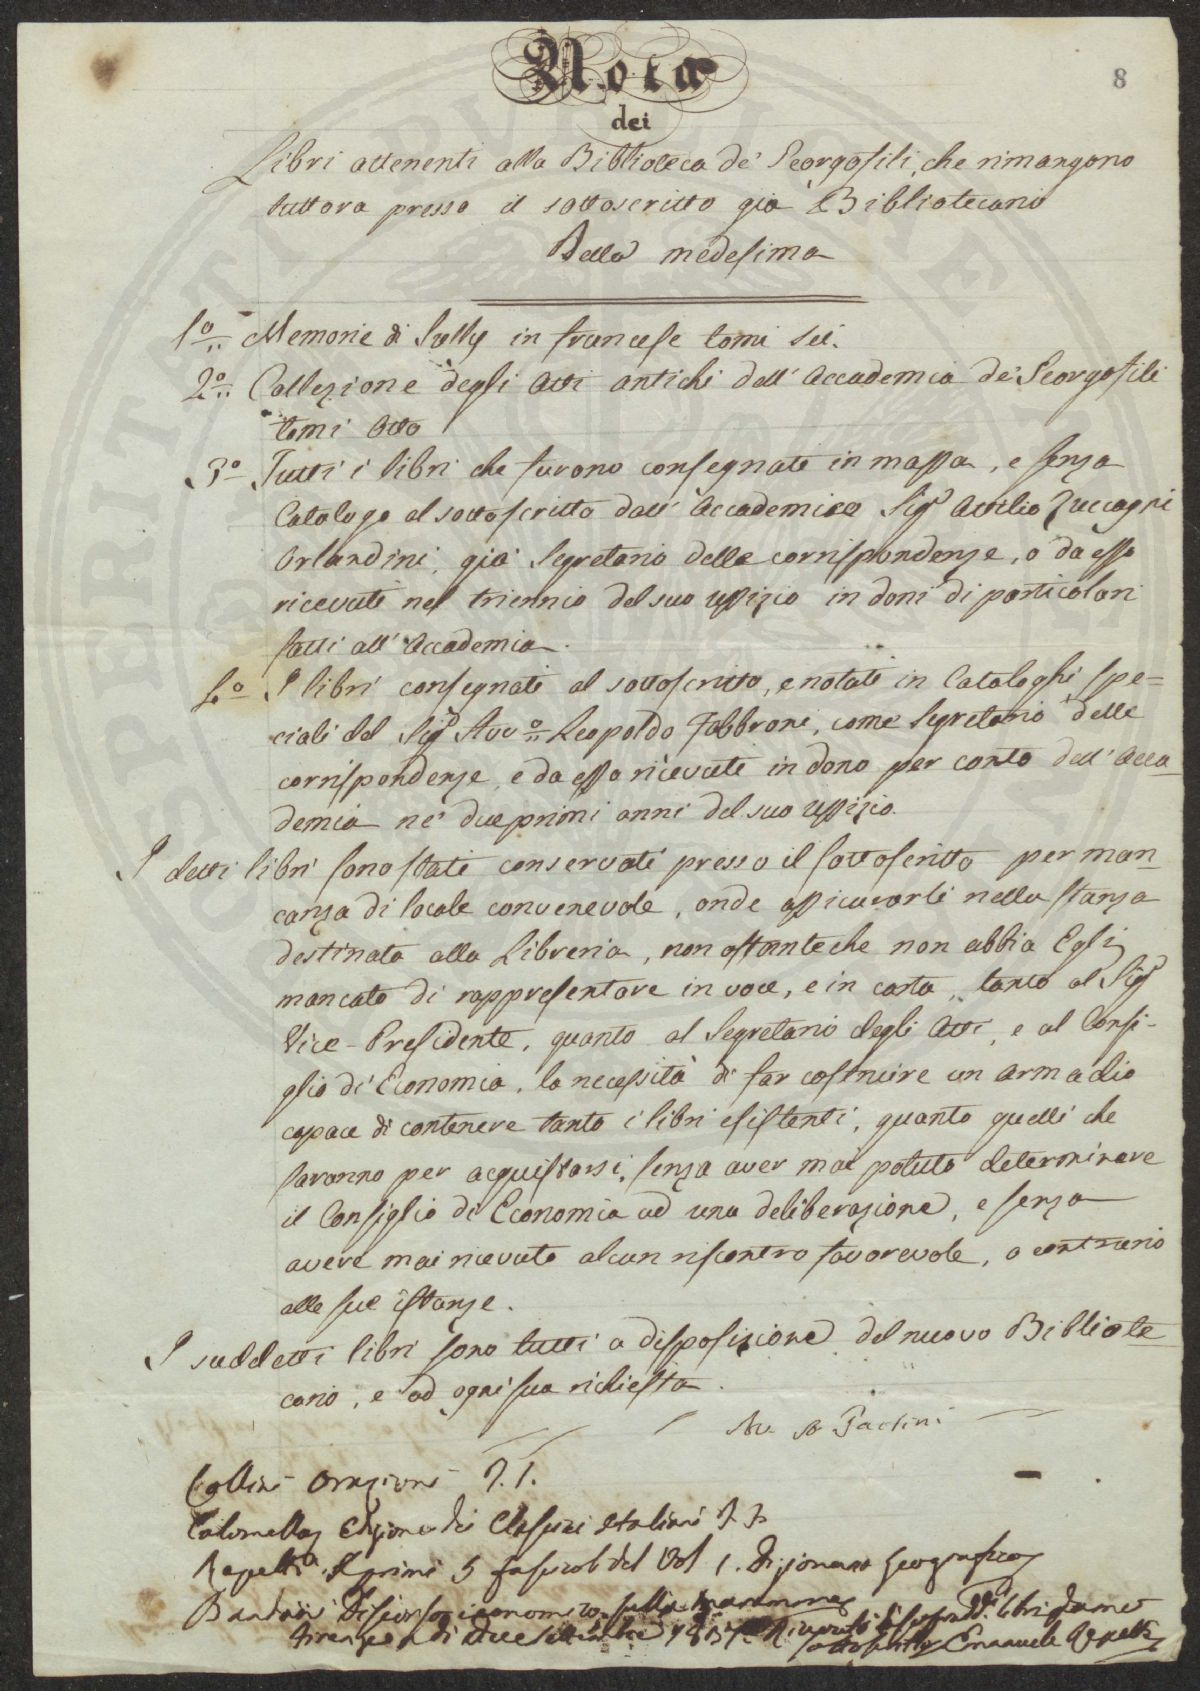 8
Nota
dei
Libri attenenti alla Biblioteca de' Georgofili, che rimangono
tuttora presso il sottoscritto già Bibliotecario
Della medesima
1º Memorie di Sully in francese tomi sei.
2º Collezione degli Atti antichi dell' Accademia de' Georgofili
tomi Otto
3º Tutti i libri che furono consegnati in massa, e senza
Catalogo al sottoscritto dall' Accademico Sigr Attilio Zuccagni
Orlandini, già Segretario delle corrispondenze, o da esso
ricevuti nel triennio del suo uffizio in doni di particolari
fatti all' Accademia.
4º I libri consegnati al sottoscritto, e notati in Cataloghi spe=
ciali del Sigr Avvº Leopoldo Fabbroni, come Segretario delle
corrispondenze, e da esso ricevuti in dono per conto dell' Acca=
demia ne' due primi anni del suo uffizio.
I detti libri sono stati conservati presso il sottoscritto per man=
canza di locale convenevole, onde assicurarli nella stanza
destinata alla Libreria, non ostante che non abbia Egli
mancato di rappresentare in voce, e in carta, tanto al Sigr
Vice-Presidente, quanto al Segretario degli Atti, e al Consi-
glio di Economia, la necessità di far costruire un armadio
capace di contenere tanto i libri esistenti, quanto quelli che
saranno per acquistarsi, senza aver mai potuto determinare
il Consiglio di Economia ad una deliberazione, e senza
avere mai ricevuto alcun riscontro favorevole, o contrario
alle sue istanze.
I suddetti libri sono tutti a disposizione del nuovo Bibliote=
cario, e ad ogni sua richiesta.
Paolini
Collini Orazioni T. I.
Columella Edizione dei Classici Italiani T.
Repetti I primi 5 fascicoli del Vol 1. Dizionario Geografico
Bandini Discorso economico sulla Maremma
Firenze a dì due settembre Ricevuti i libri da me
sottoscritto Emanuele Repetti